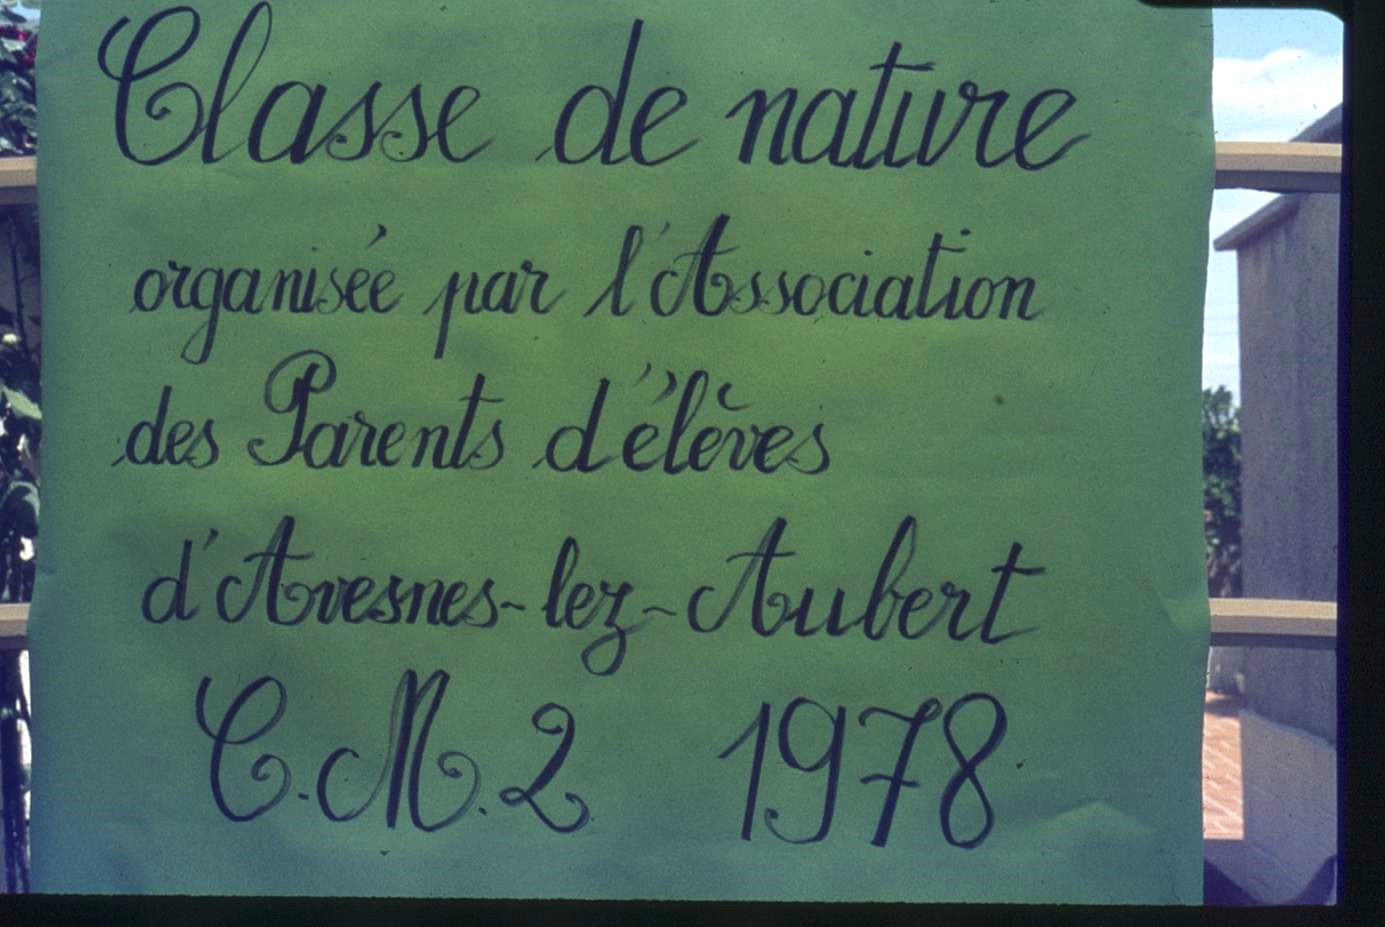 Classe de nature
organisée par l'Association
des Parents d'élèves
d'Avesnes-lez-Aubert
C.M.2 1978